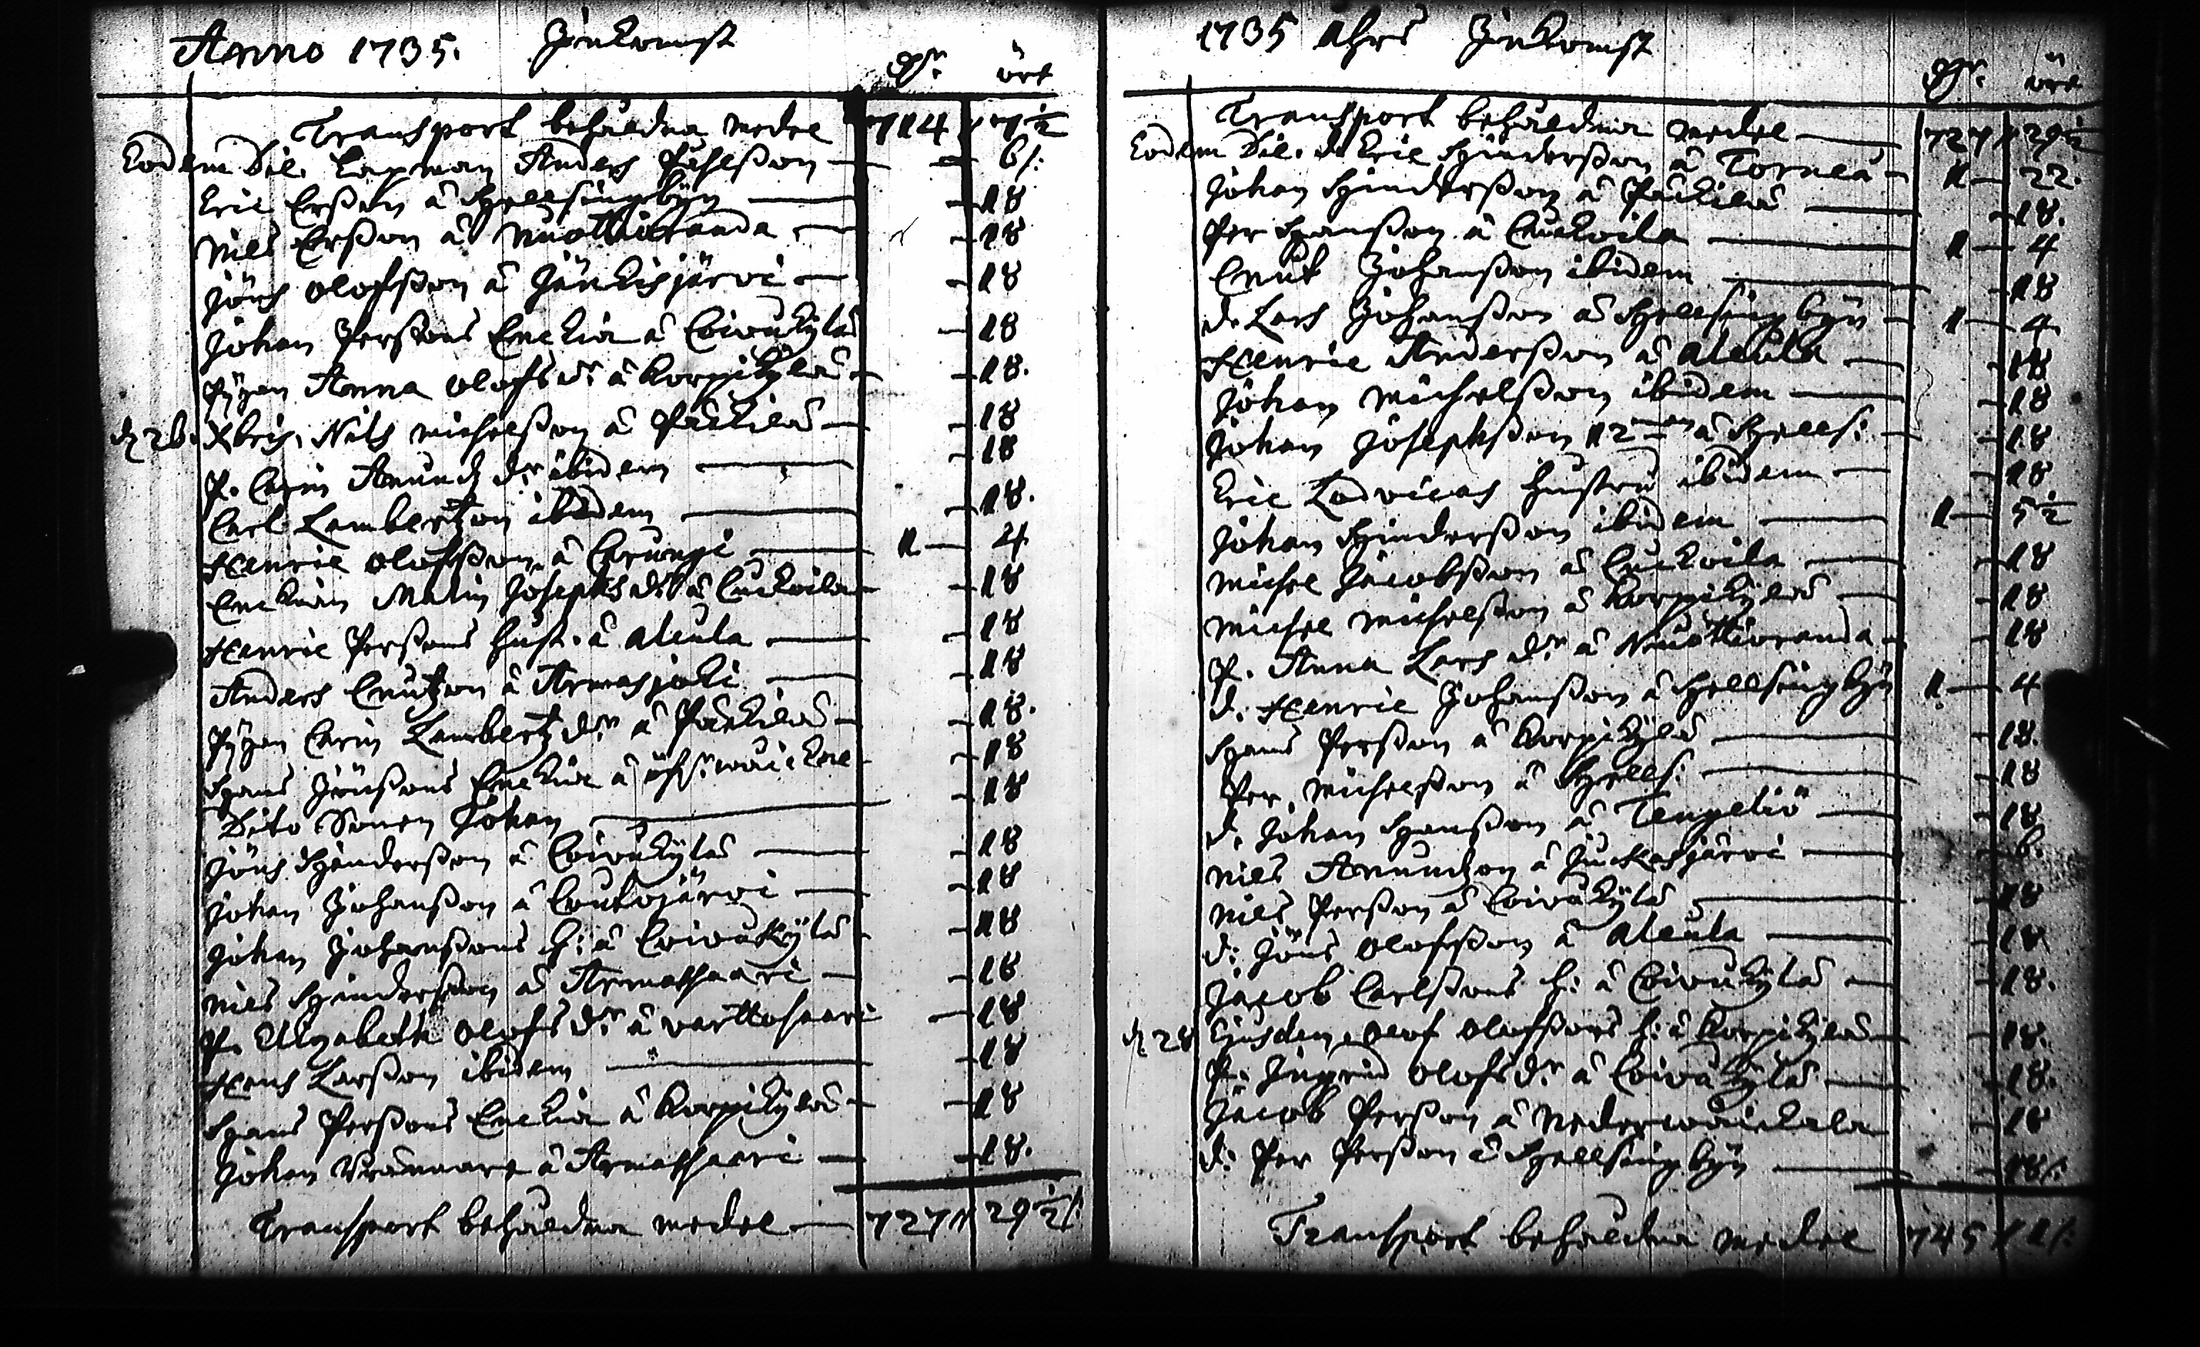 Anno 1735. Inkomst
dlr. öre
Transport behåldna medel 714 // 7 1/2
Eodem Die. Lapman Anders Påhlßon — 6/:
Eric Erßon â Hellsingbyn — 18
Nils Erßon â Nuottioranda — 18
Jöns Olofsßon â Jänkisjärvi — 18
Johan Perßons Enckia â Coivukylä — 18
Pigan Anna Olofs dr. â Korpikylä — 18.
d 26. Xbris. Nils Michelßon â Päckilä — 18
P. Carin Amunds dr ibidem — 18
Carl Lambertzon ibidem — 18.
Henric Olofsßon â Carungi — 1 — 4
Enckian Malin Josephs dr â Cuckoila — 18
Henric Perßons hust. â Alcula — 18
Anders Cnutzon â Armasjoki — 18
Pigan Carin Lambertz dr. â Päckilä — 18.
Hans Jönßons Enckia â — 18
Dito Sonen Johan — 18
Jöns Hinderßon â Coivukylä — 18
Johan Johanßon â Coutojärvi — 18
Johan Johanßons h: â Coivukylä — 18
Nils Hinderßon â Armassaari — 18
P. Elizabeth Olofs dr. â Varttosaari — 18
Hans Larßon ibidem — 18
Hans Perßons Enckia â Korpikylä — 18
Johan â Armassaari — 18.
Transport behåldna medel — 727 // 29 1/2/:
1735 åhrs Inkomst
dlr. öre
Transport behåldna medel — 727 // 29 1/2
Eodem Die. d. Eric Hinderßon â Torneå — 1 — 22.
Johan Hinderßon â Päckilä — 18.
Per Hanßon â Cuckoila — 1 — 4
Cnut Johanßon ibidem — 18
d. Lars Johanßon â Hellsingbyn — 1 — 4
Henric Anderßon â Alcula — 18
Johan Michelßon ibidem — 18
Johan Josephßon 12 â Hells: — 18
Eric Lodvicas hustru ibidem — 18
Johan Hinderßon ibidem — 1 — 5 1/2
Michel Jacobßon â Cuckoila — 18
Michel Michelßon â Korpikylä — 18
P. Anna Lars dr. â Nuottioranda — 18
d. Henric Johanßon â Hellsingbyn 1 — 4
Hans Perßon â Korpikylä — 18.
Per Michelßon â Hells: — 18
d. Johan Hanßon â Tengeliö — 18
Nils Amundzon â Juckasjärvi — 6.
Nils Perßon â Coivukylä — 18
d: Jöns Olofsßon â Alcula — 18
Jacob Carlßons h: â Coivukylä — 18.
d 28 Ejusdem. Olof Olofsßons h: â Korpikylä — 18.
P. Ingrid Olofs dr. â Coivukylä — 18.
Jacob Perßon â Nederwoiackala — 18
d: Per Perßon â Hellsingbyn — 18/:
Transport behåldna medel 745 // 11/: